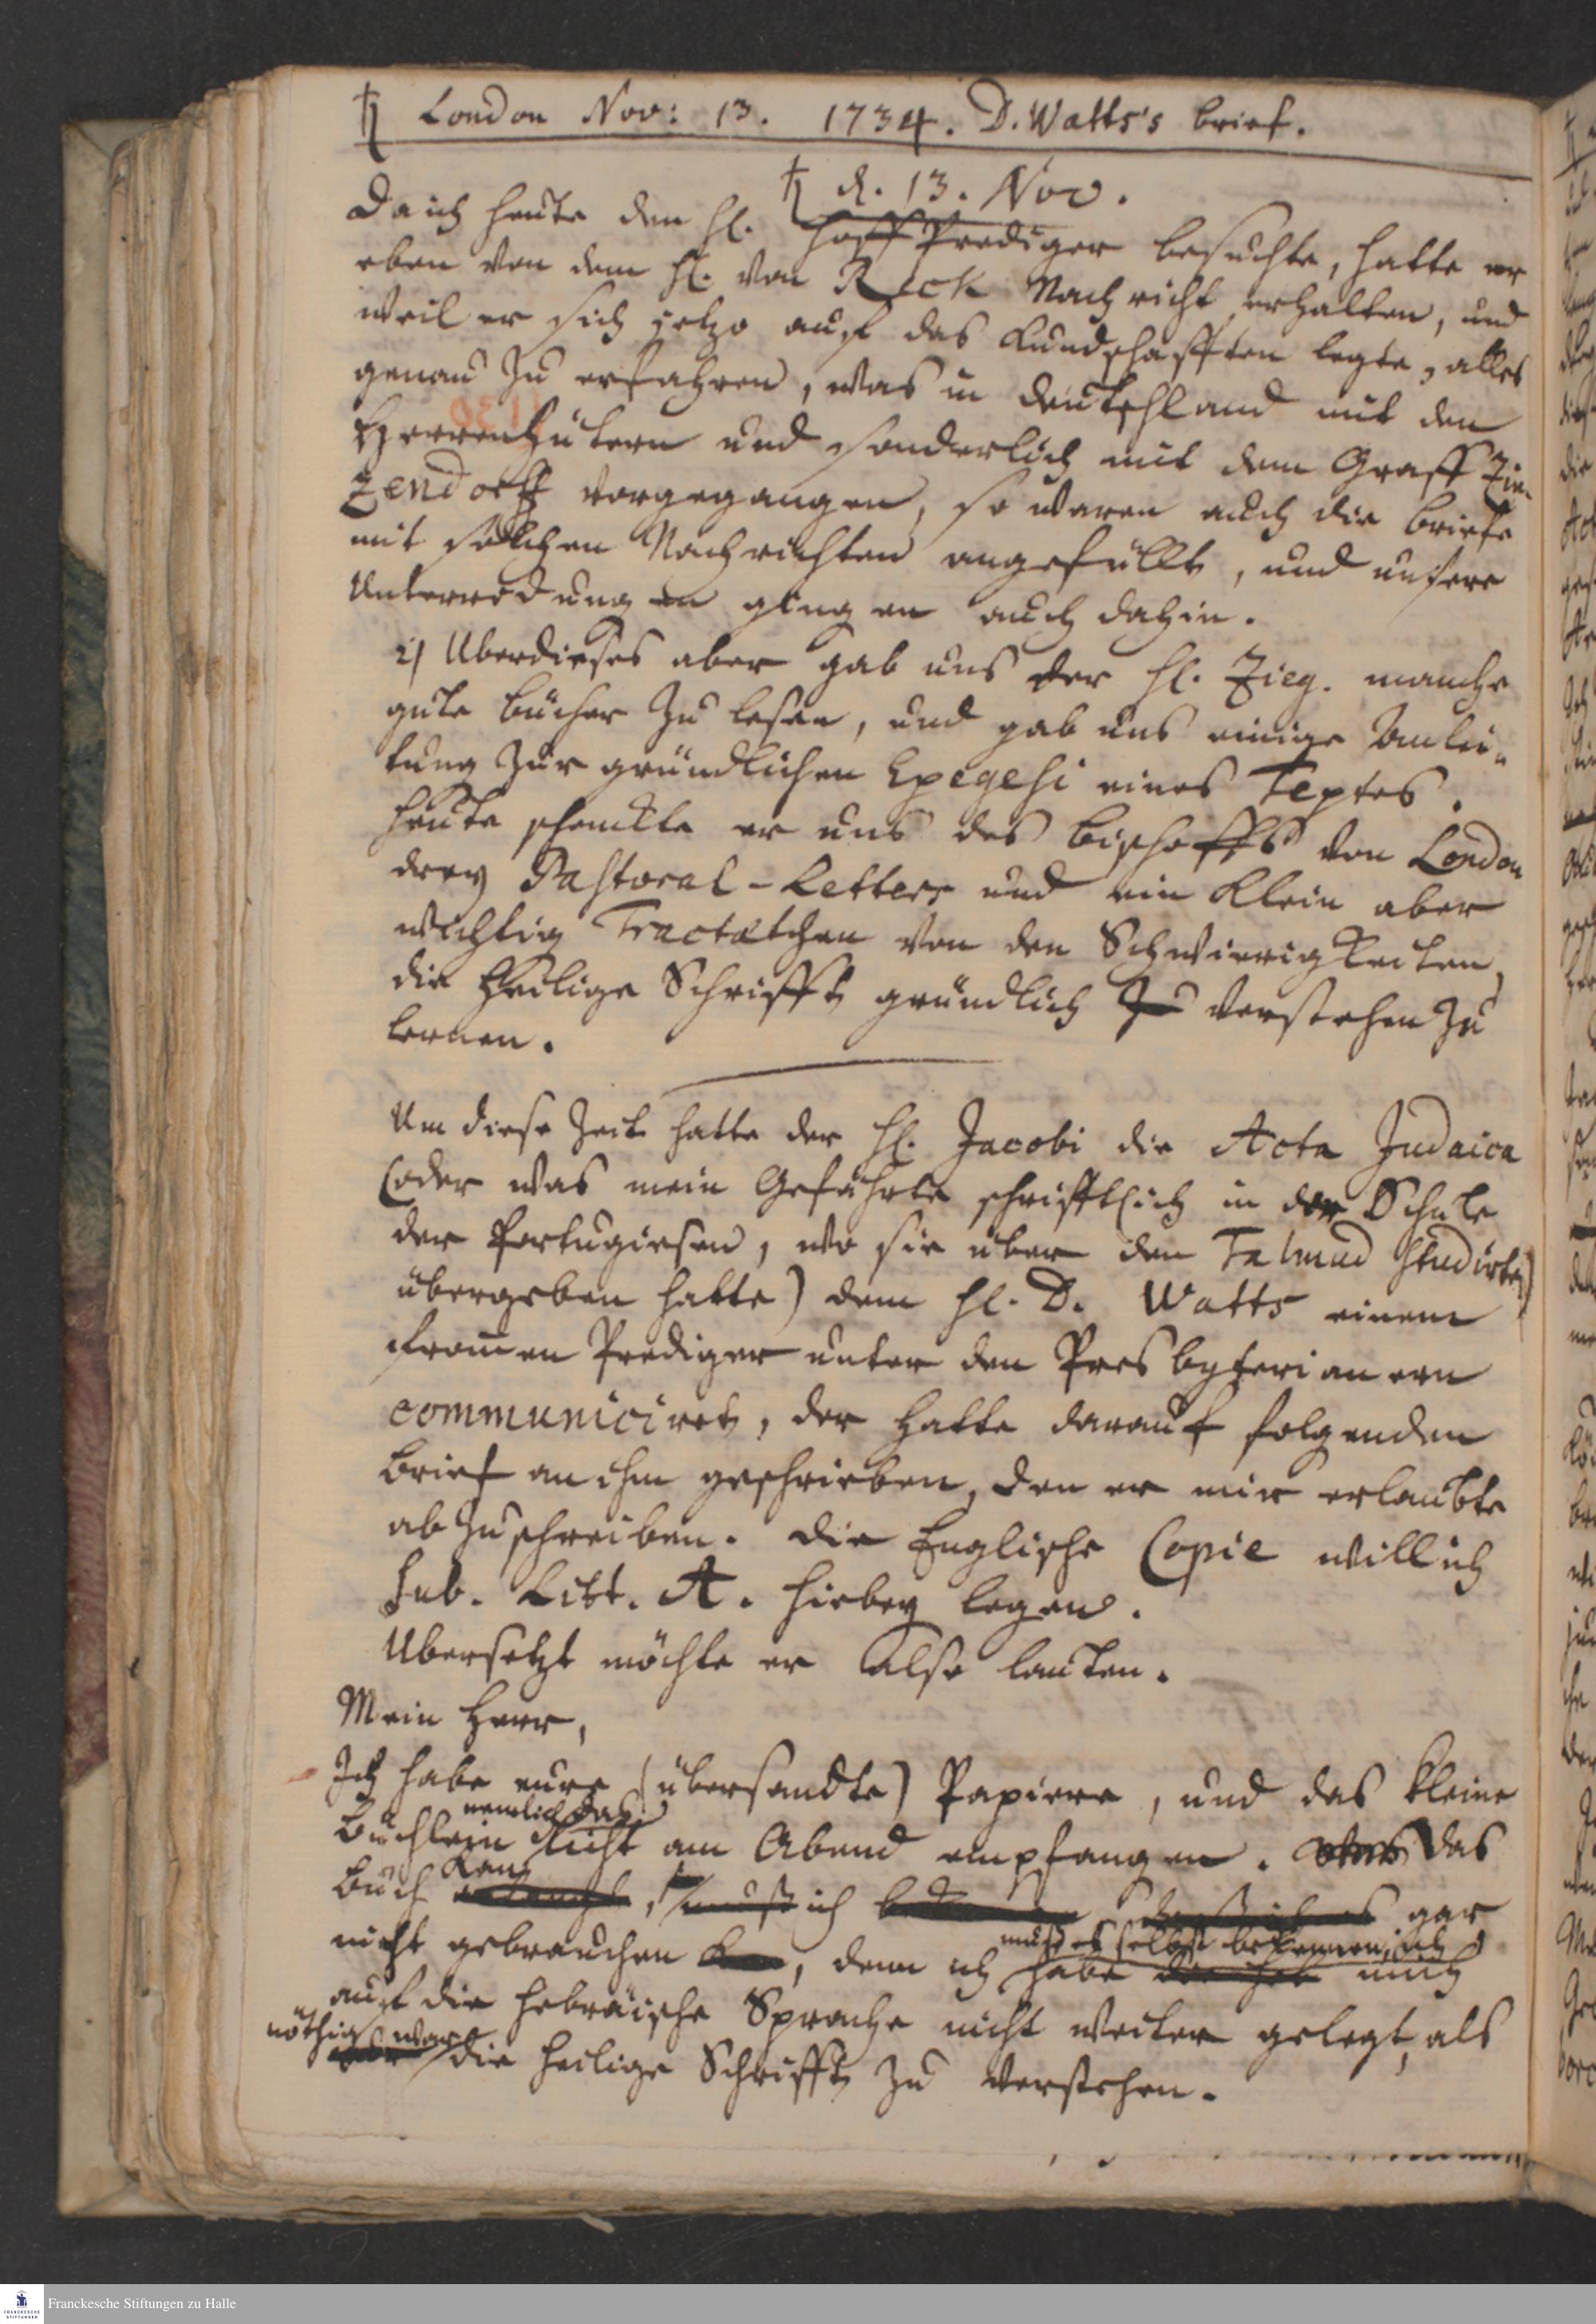 ♄ London Nov: 13. 1734. D. Watts's brief.
♄ d. 13. Nov.
Da ich heute den H. Hoff Prediger besuchte, hatte er
eben von dem H. von Reck Nachricht erhalten, und
weil er sich jetzo auf das Kundschafften legte, alles
genau zu erfahren, was in Deutschland mit den
Herrenhütern und sonderlich mit dem Graff Zin-
zendorff vorgegangen, so waren auch die briefe
mit solchen Nachrichten angefüllt, und unsere
Unterredungen gingen auch dahin.
2) Uberdieses aber gab uns der H. Zieg. manche
gute bücher zu lesen, und gab uns einige Anlei-
tung zur gründlichen Exegesi eines Textes.
Heute schenckte er uns des bischoffs von London
drey Pastoral-Letters und ein klein aber
wichtig Tractætchen von den Schwierigkeiten,
die Heilige Schrifft gründlich zu verstehen zu
lernen.
Um diese Zeit hatte der H. Jacobi die Acta Judaica
(oder was mein Gefährte schrifftlich in der Schule
der Portugiesen, wo sie über den Talmud studirten
übergeben hatte) dem H. D. Watts einem
frommen Prediger unter den Presbyterianern
communiciret, der hatte darauf folgenden
brief an ihm geschrieben, den er mir erlaubte
abzuschreiben. Die Englische Copie will ich
sub. Litt. A. hiebey legen.
Ubersetzt möchte er also lauten.
Mein Herr,
Ich habe eure (übersandte) Papiere, und das kleine
nemlich das
Büchlein Licht am Abend empfangen. das
Kan
Buch , muß ich gar
muß es selbst bekennen, ich
nicht gebrauchen , denn ich habe mich
auf die Hebräische Sprache nicht weiter gelegt, als
nöthig war
die heilige Schrifft zu verstehen.
Franckesche Stiftungen zu Halle
FRANCKESCHE
STIFTUNGEN